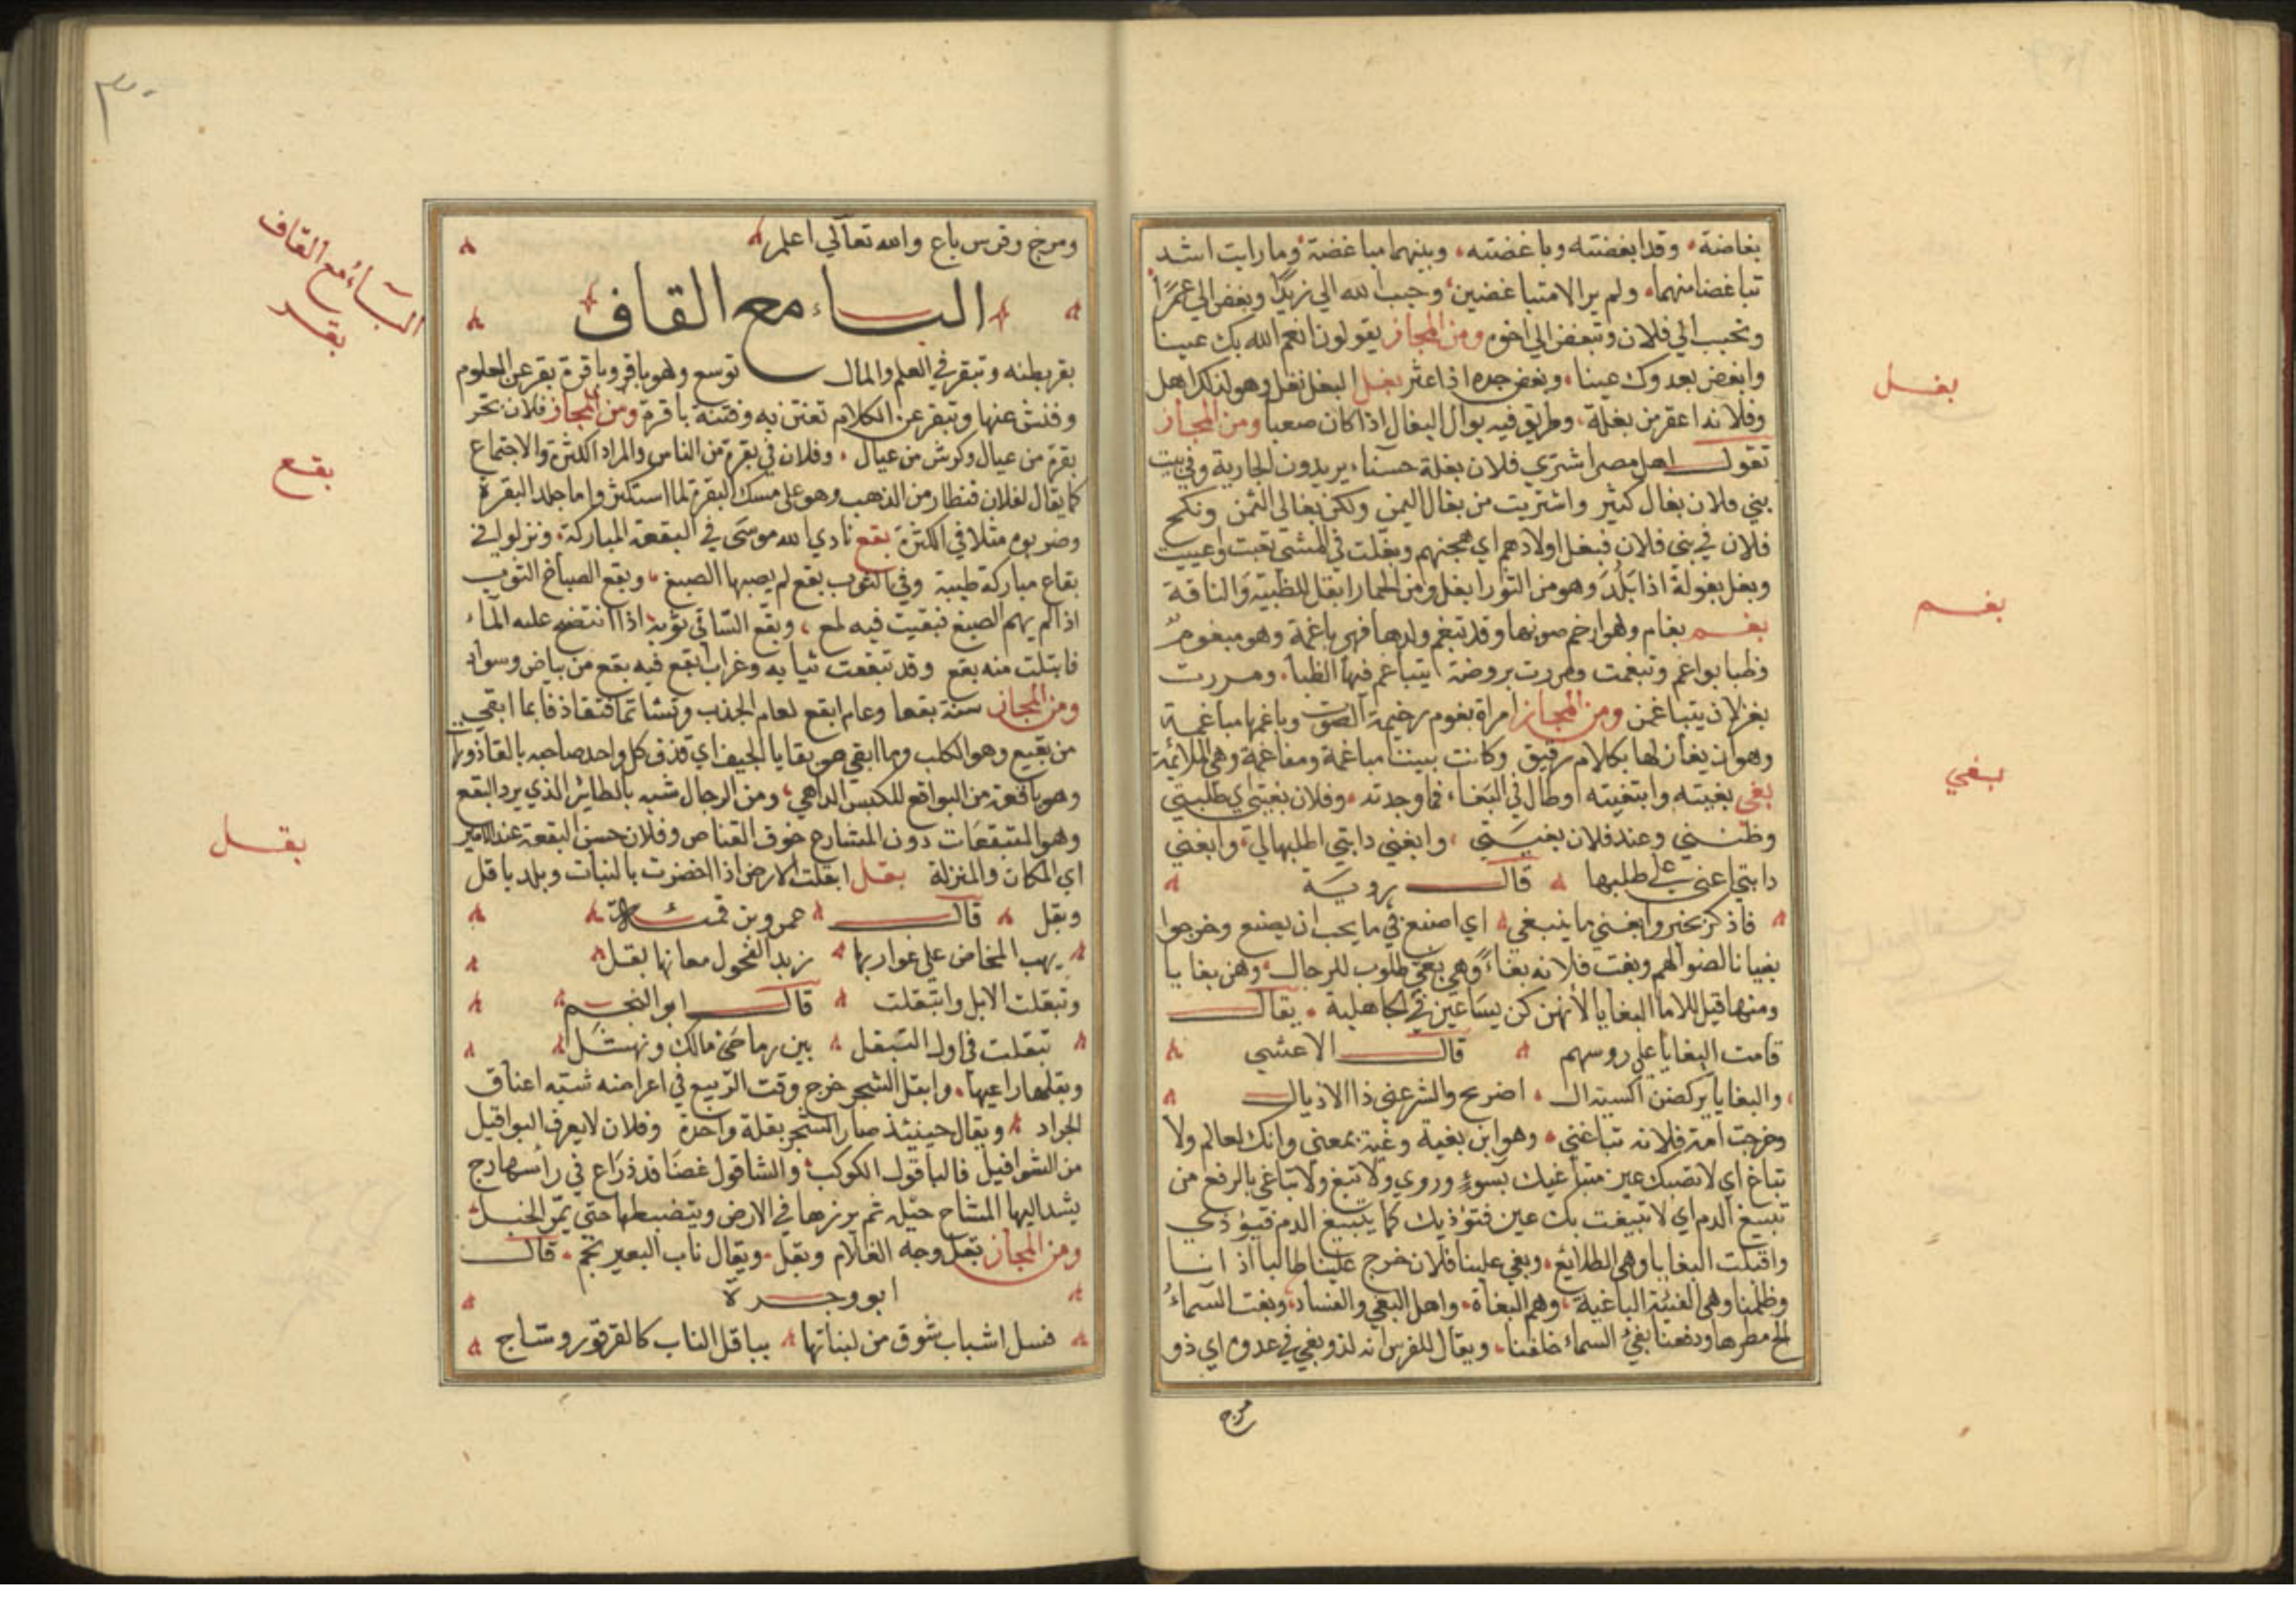 بغاضة وقد ابغضته وباغضته وبينهما مباغضة وما رايت اشد
تباغضا منهما ولم يرالا متباغضين وحبب الله الي زيدا وبغض الي عمرا
وتحبب الي فلان وتبغض الي اخوه ومن المجاز يقولون انعم الله بك عينا
وابغض بعدوك عينا وبغض جده اذا عثر بغل البغل نغل وهو لذلك اهل
وفلانة اعقر من بغلة وطريق فيه بوال البغال اذا كان صعبا ومن المجاز
تقول اهل مصر اشتري فلان بغلة حسنا يريدون الجارية وفي بيت
بني فلان بغال كثير واشتريت من بغال اليمن ولكن بغالي الثمن ونكح
فلان في بني فلان فبغل اولادهم اي هجنهم وبغلت في المشي تعبت واعييت
وبغل بغولة اذا بلد وهو من الثور ابغل ومن الحمار ابغل للظبية والناقة
بغم بغام وهو ارخم صوتها وقد تبغم ولدها فهي باغمة وهو مبغوم
وظبا بواغم وتبغمت ومررت بروضة يتباغم فيها الظبا ومررت
بغزلان يتباغمن ومن المجاز امراة بغوم رخيمة الصوت وباغمها مباغمة
وهو ان يغازلها بكلام رقيق وكانت بيننا مباغمة ومفاغمة وهي الملاثمة
بغي بغيته وابتغيته وطال في البغاء فما وجدته وفلان بغيتي اي طلبتي
وظنتي وعند فلان بغيتي وابغني دابتي اطلبها لي وابغني
دابتي اعني علي طلبها قال روبة
فاذكر بخير وابغني ما ينبغي اي اصنع في ما يحب ان يصنع وخرجوا
بغيانا لضوالهم وبغت فلانه بغاء وهي بغي طلوب للرجال وهن بغايا
ومنها قيل للاما البغايا لانهن كن يساعين في الجاهلية يقال
قامت البغايا علي روسهم قال الاعشي
والبغايا يركضن اكسية ال اضريح والشرعني ذا الاذيال
وخرجت امة فلانه تباغي وهو ابن بغية وغية بمعني وانك لعالم ولا
تباغ اي لا تصبك عين متباغيك بسوء وروي ولا تبغ ولا تباغي بالرفع من
تبيغ الدم اي لا تبيغت بك عين فتوذيك كما يتبيغ الدم فيوذي
واقبلت البغايا وهي الطلائع وبغي علينا فلان خرج علينا طالبا اذانا
وظلمنا وهي الفئة الباغية وهم البغاة واهل البغي والفساد وبغت السماء
الح مطرها ودفعنا بغي السماء خلفنا ويقال للفرس انه لذو بغي في عدوه اي ذو
مرح
بغل
بغم
بغي
٣٠
ومرح وفرس باغ والله تعالي اعلم
الباء مع القاف
بقر بطنه وتبقر في العلم والمال توسع وهو باقر وباقرة بقر عن العلوم
وفتش عنها وتبقر عن الكلام تفتن به وفتنة باقرة ومن المجاز فلان يجر
بقرة من عيال وكرش من عيال وفلان في بقرة من الناس والمراد الكثرة والاجتماع
كما يقال لفلان قنطار من الذهب وهو علي مسك البقرة لما استكثروا ما جلد البقرة
وضربوه مثلا في الكثرة بقع نادي الله موسي في البقعة المباركة ونزلوا في
بقاع مباركة طيبة وفي الثوب بقع لم يصبها الصبغ وبقع الصباغ الثوب
اذا لم يعم الصبغ فبقيت فيه لمع وبقع الساقي ثوبه اذا انتضح عليه الماء
فابتلت منه بقع وقد تبقعت ثيابه وغراب ابقع فيه بقع من بياض وسواد
ومن المجاز سنة بقعا وعام ابقع لعام الجذب وتشاتما فتقاذفا بما ابقي
من بقيع وهو الكلب وما ابقي هو بقايا الجيف اي قذف كل واحد صاحبه بالقاذورات
وهو باقعة من البواقع للكيس الداهي ومن الرجال شبه بالطائر الذي يرد البقع
وهو المستنقعات دون المشارع خوف القناص وفلان حسن البقعة عند الامير
اي المكان والمنزلة بقل ابقلت الارض اذا اخضرت بالنبات وبلد باقل
وبقل قال عمرو بن قميئة
يهب المخاض علي غواربها زبد الفحول معانها بقل
وتبقلت الابل وابتقلت قال ابو النجم
تبقلت في اول التبقل بين رماحي مالك ونهشل
وبقلها راعيها وابقل الشجر خرج وقت الربيع في اعراضه شبه اعناق
الجراد ويقال حينئذ صار الشجر بقلة واحدة وفلان لا يعرف البواقيل
من الشواقيل فالباقول الكوكب والشاقول غصنا قدر ذراع في راسها زج
يشد اليها المساح حبله ثم يرزها في الارض ويتضبطها حتي يمد الحبل
ومن المجاز بقل وجه الغلام وبقل ويقال ناب البعير نجم قال
ابو وجزة
فسل اشباب شوق من لبناتها بباقل الناب كالقرقور وساج
الباء مع القاف
بقر
بقع
بقل